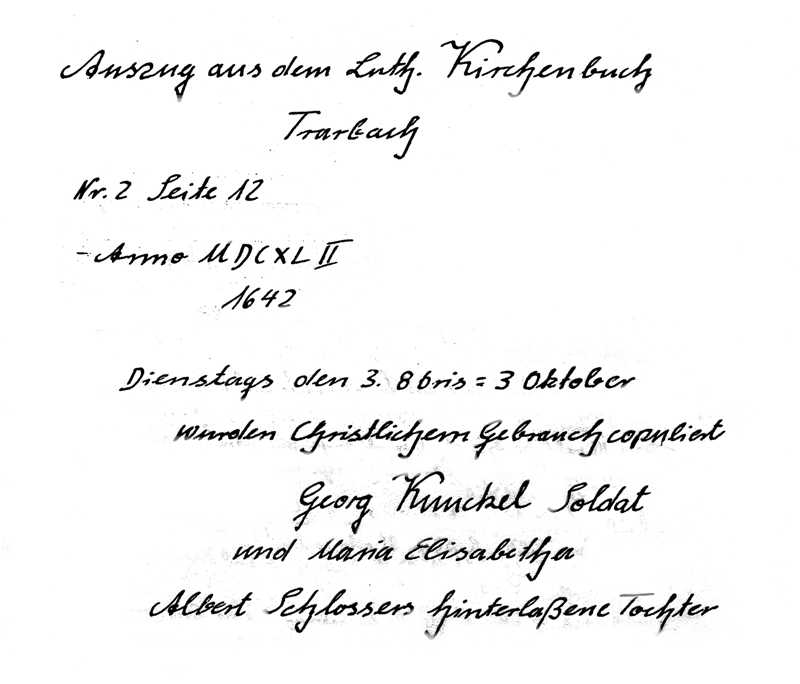 Auszug aus dem Luth. Kirchenbuch
Trarbach
Nr. 2 Seite 12
- Anno MDCXLII
1642
Dienstags den 3. 8bris = 3 Oktober
wurden Christlichem Gebrauch copuliert
Georg Kunckel Soldat
und Maria Elisabetha
Albert Schlossers hinterlaßene Tochter